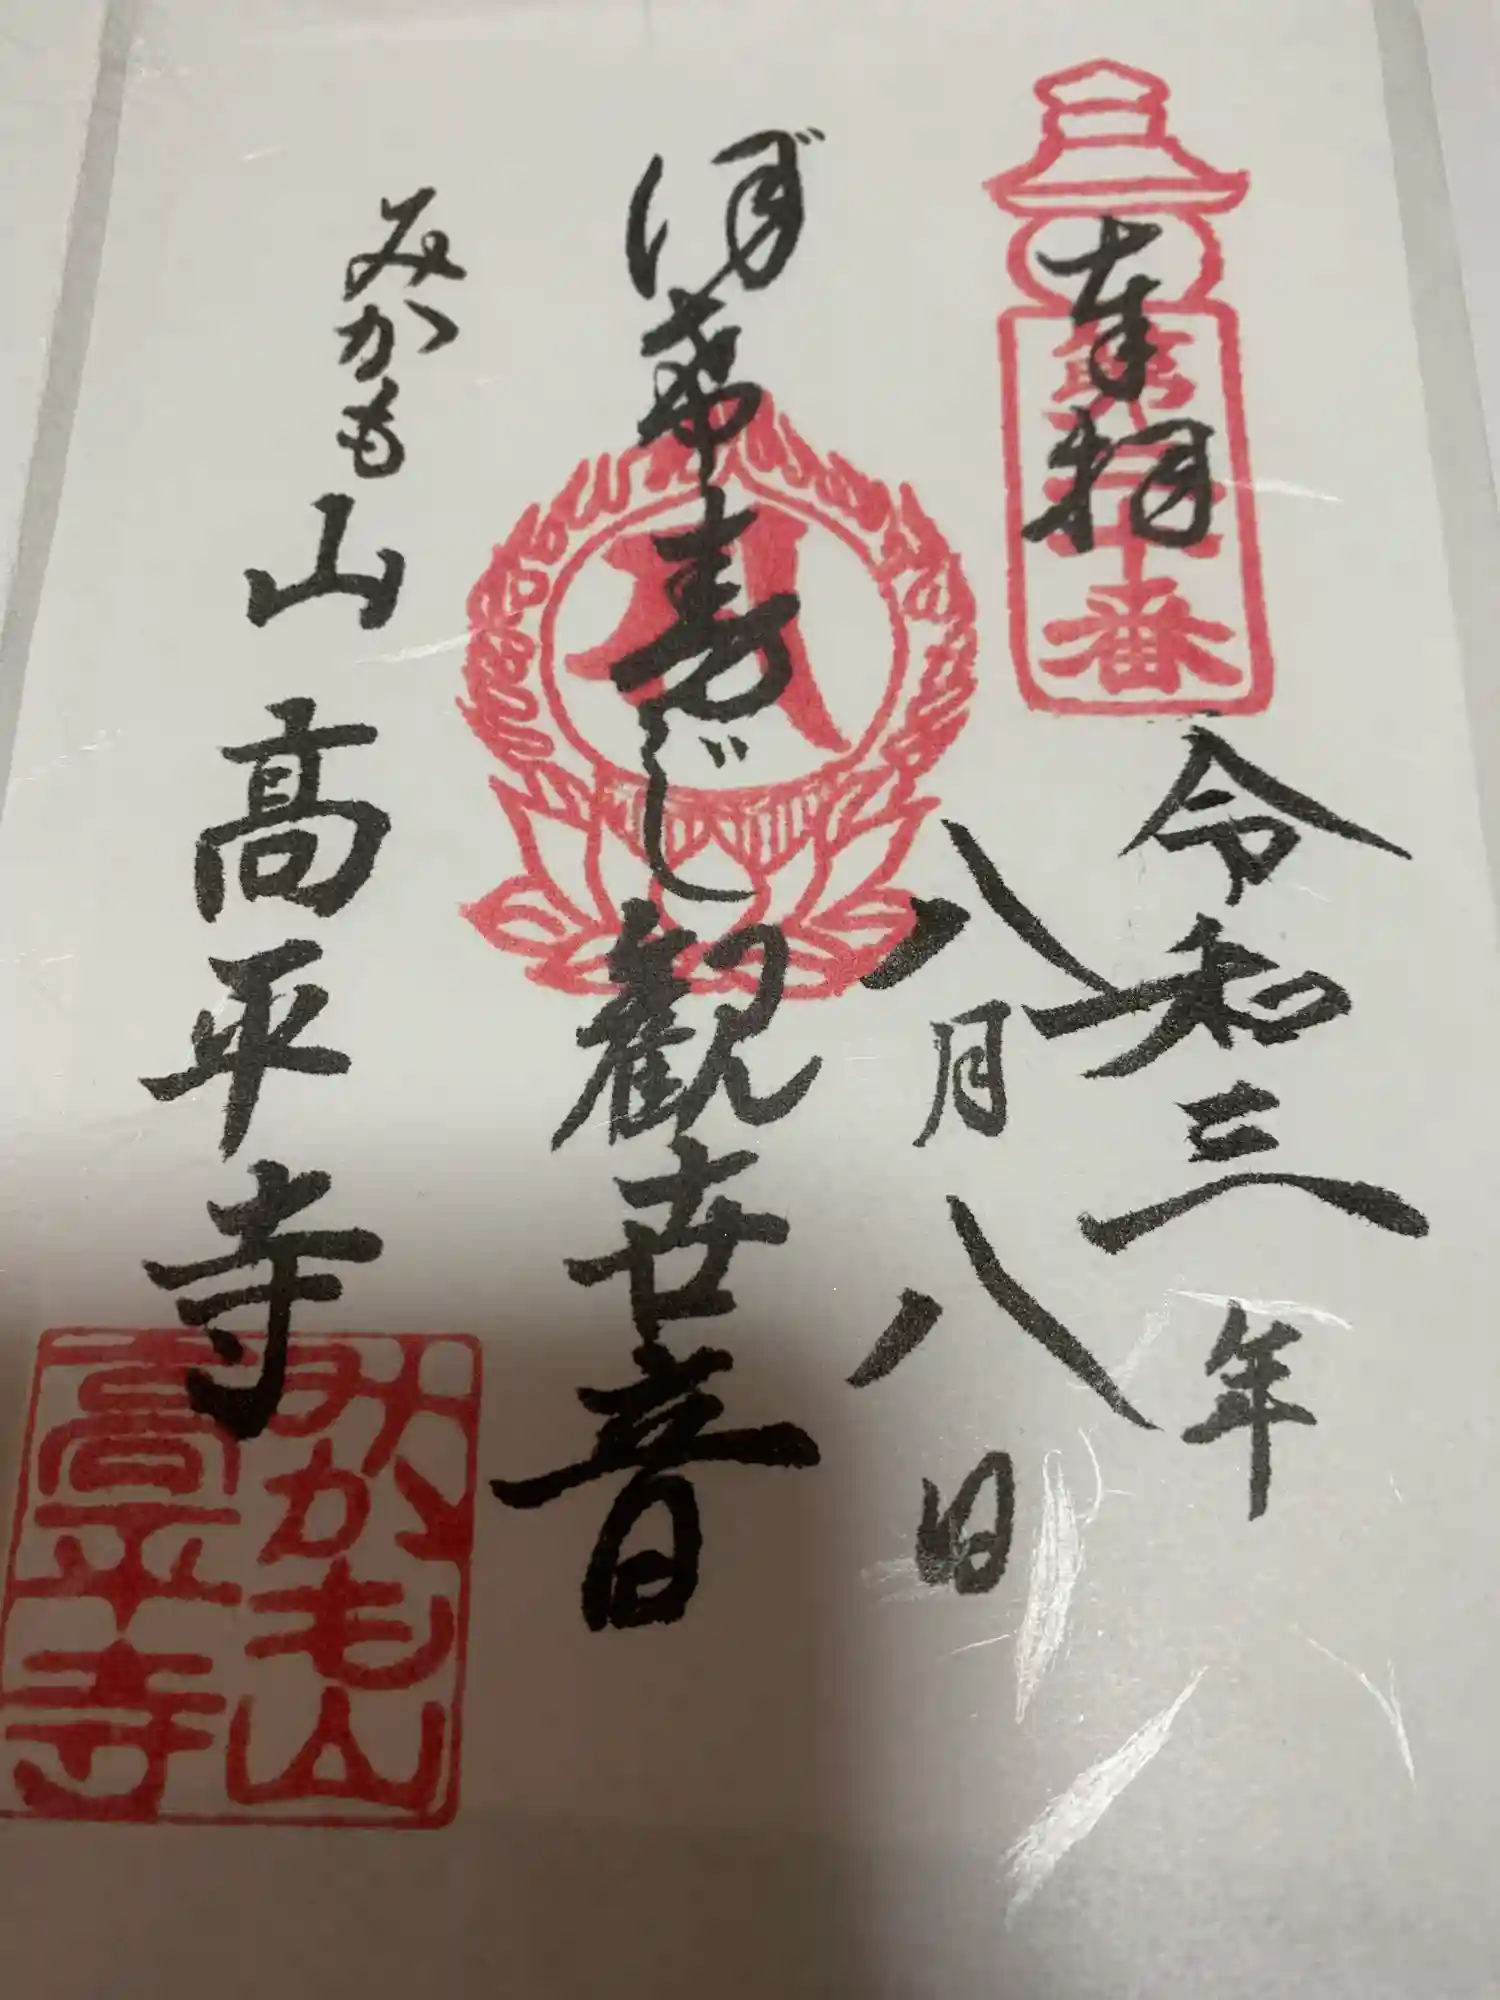 奉拝
令和三年
八月八日
ぼ希寿じ観世音
みかも山 高平寺
みかも山
高平寺